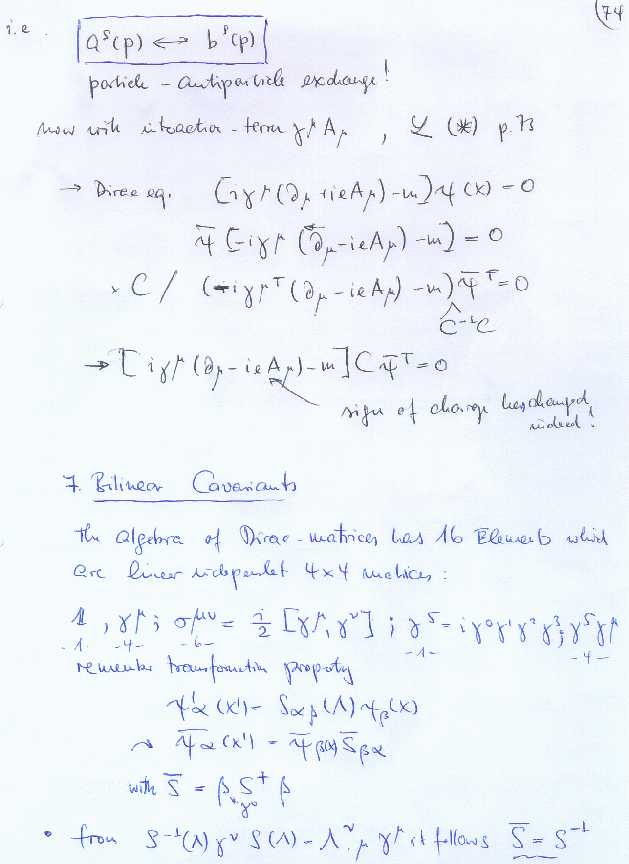 74
i.e. a^s(p) ↔ b^s(p)
particle - antiparticle exchange!
now with interaction-term γ^μ A_μ , ℒ (*) p. 73
→ Dirac eq. [iγ^μ(∂_μ+ieA_μ)-m]ψ(x) = 0
ψ̄ [-iγ^μ (∂⃖_μ-ieA_μ)-m] = 0
× C / (-iγ^μT (∂_μ-ieA_μ)-m) ψ̄^T = 0
C^-1C
→ [iγ^μ (∂_μ-ieA_μ)-m] C ψ̄^T = 0
sign of charge has changed
indeed!
7. Bilinear Covariants
the algebra of Dirac-matrices has 16 Elements which
are linear independet 4x4 matrices:
1 , γ^μ ; σ^μν = i/2 [γ^μ, γ^ν] ; γ^5 = iγ^0γ^1γ^2γ^3; γ^5γ^μ
-1- -4- -6- -1- -4-
remember transformation property
ψ'_α(x') = S_αβ(Λ) ψ_β(x)
↝ ψ̄'_α(x') = ψ̄_β(x) S̄_βα
with S̄ = β S^+ β
γ^0
• from S^-1(Λ) γ^ν S(Λ) = Λ^ν_μ γ^μ it follows S̄ = S^-1